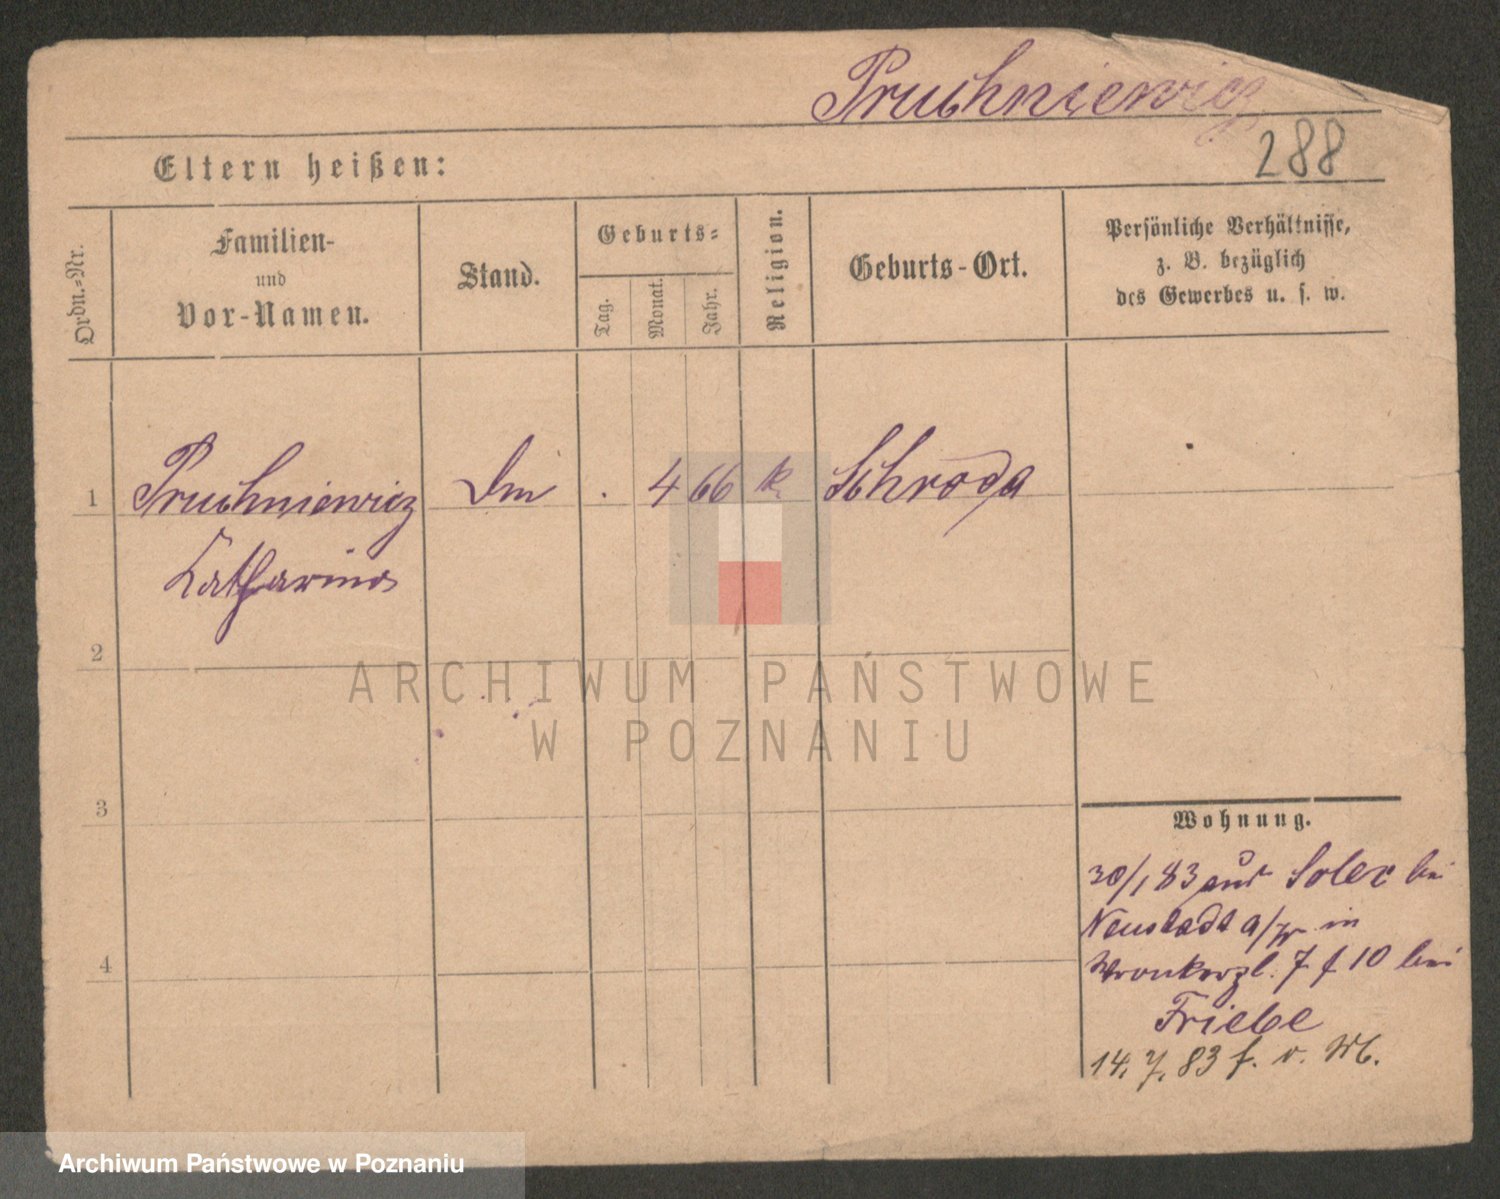 Pruchniewicz
288
Eltern heißen:
Ordn.-Nr.
Familien-
und
Vor-Namen.
Stand.
Geburts-
Tag.
Monat.
Jahr.
Religion.
Geburts-Ort.
Persönliche Verhältnisse,
z. B. bezüglich
des Gewerbes u. s. w.
1 Pruchniewicz . 4 66 k Schroda
Catharina
2
3
4
Wohnung.
30/1 83 aus Solec bei
Neustadt a/W in
Wronkerpl. 7 f 10 bei
Friebe
14. 7. 83 f. v.
ARCHIWUM PAŃSTWOWE
W POZNANIU
Archiwum Państwowe w Poznaniu